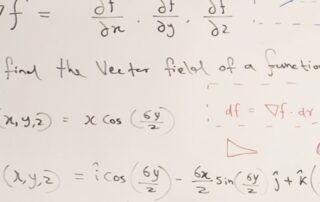 ∇f = ∂f/∂x . ∂f/∂y . ∂f/∂z
find the Vector field of a function
(x,y,z) = x cos (6y/z)
df = ∇f · dr
(x,y,z) = î cos (6y/z) - 6x/z sin (6y/z) ĵ + k̂ (